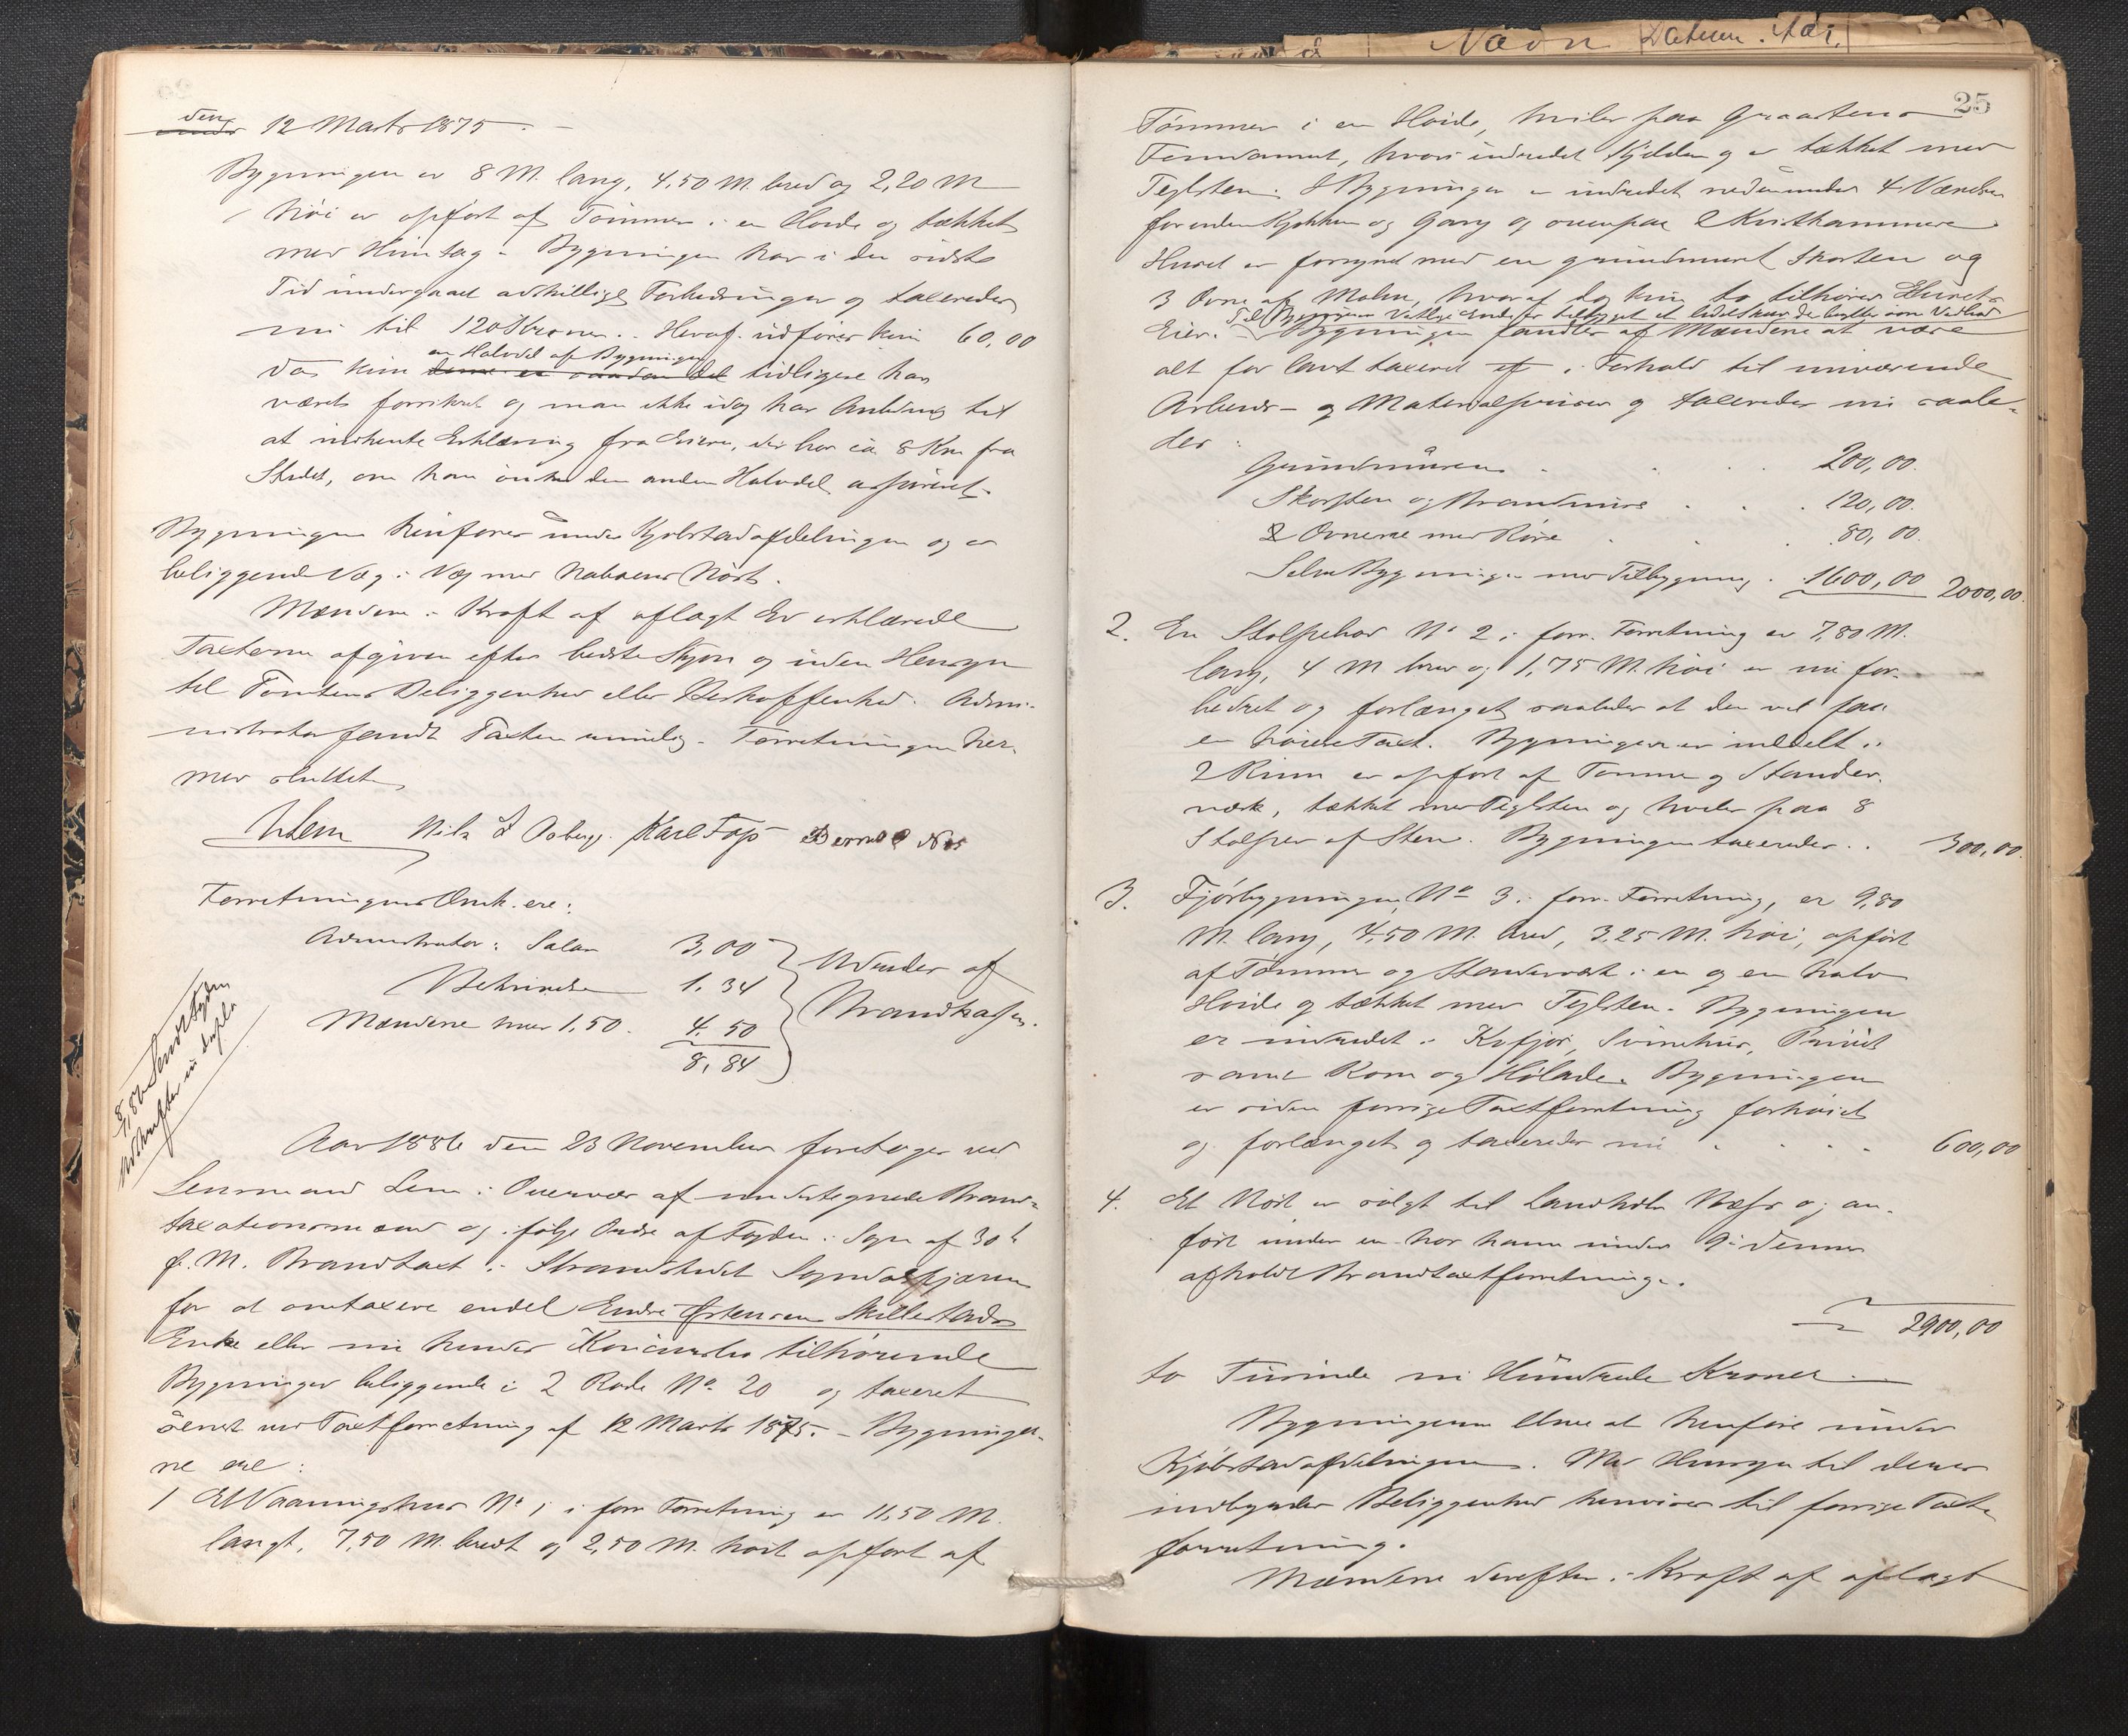 den
12 Marts 1875.
Bygningen er 8 M. lang, 4,50 M bred og 2,20 M
høi er opført af Tømmer i en Høide og tækket
med Huntag. Bygningen har i den sidste
Tid undergaaet adskillige Forbedringer og taxeredes
nu til 120 Kroner. Heraf udføres kun 60,00
en Halvdel af Bygningen
da kun tidligere har
været forsikret og man ikke idag har Anledning til
at indhente Erklæring fra Eieren, der bor ca 8 Km fra
Stedet, om han ønsker den anden Halvdel assureret.
Bygningen henføres under Kjøbstadafdelingen og er
beliggende Væg i Væg med Naboens Nøst.
Mændene i Kraft af aflagt Ed erklærede
Taxterne afgiven efter bedste Skjøn og uden Hensyn
til Tomtens Beliggenhed eller Beskaffenhed. Admi-
nistrator fandt Taxten rimelig. Forretningen her-
med sluttet
Lem Nils I Aaberge. Karl Fop
Forretningens Omk. ere:
Administrator: Salær 3,00
1.34
Mændene hver 1.50. 4.50
8,84
Udredes af
Brandkassen.
Udskrifter in duplo
Aar 1886 den 23 November foretoges ved
Lensmand Lem i Overvær af undertegnede Brand-
taxationsmænd og ifølge Ordre af Fogden i Sogn af 30te
f. M. Brandtaxt i Strandstedet Sogndalsfjæren
for at omtaxere endel Endre Østensen Skillestads
Enke eller nu hendes tilhørende
Bygninger beliggende i 2 Rode No 20 og taxeret
senest ved Taxtforretning af 12 Marts 1875. - Bygninger-
ne ere:
1 Et Vaaningshus No 1 i forr Forretning er 11,50 M.
langt, 7,50 M. bredt og 2,50 M. høit opført af
Nævn Datum. Aar.
25
Tømmer i en Høide, hviler paa Graastens
Fundament, hvori indredet Kjelder og er tækket med
Teglsten. I Bygningen er indredet nedenunder 4 Værelser
foruden Kjøkken og Gang og ovenpaa 2 Kvistkammere
Huset er forsynet med en grundmuret Skorsten og
3 Ovne af Malm, hvoraf dog kun to tilhører Husets
Til Bygningens Vestlige Ende er tilbygget et lidet skur der benyttes som Vedbod
Eier. Bygningen fandtes af Mændene at være
alt for lavt taxeret i Forhold til nuværende
Arbeids- og Materialpriser og taxeredes nu saale-
des:
Grundmuren . . . 200,00.
Skorsten og Brandmure . . . 120,00.
2 Ovnene med Rør . . . 80,00.
Selve Bygningen med Tilbygning . 1600,00 2000,00.
2. En Stolpebod No 2 i forr. Forretning er 7,80 M.
lang, 4 M bred og 1,75 M. høi er nu for-
bedret og forlænget saaledes at den vil faa
en høiere Taxt. Bygningen er inddelt i
2 Rum er opført af Tømmer og Stander-
værk, tækket med Teglsten og hviler paa 8
Stolper af Sten. Bygningen taxeredes . . 300,00.
3. Fjøsbygningen, No 3 i forr. Forretning, er 9,80
M. lang, 4,50 M. bred, 3,25 M. høi, opført
af Tømmer og Standerværk i en og en halv
Høide og tækket med Teglsten. Bygningen
er indredet i Kofjøs, Svinehus, Privet
samt Korn og Hølade. Bygningen
er siden forrige Taxtforretning forhøiet
og forlænget og taxeredes nu . . . . 600,00
4. Et Nøst er solgt til Landhdlr Næss og an-
ført under en hos ham under 9de dennes
afholdt Brandtaxtforretning.
2900,00
to Tusinde ni Hundrede Kroner.
Bygningerne blive at henføre under
Kjøbstadafdelingen. Med Hensyn til deres
indbyrdes Beliggenhed henvises til forrige Taxt-
forretning.
Mændene derefter i Kraft af aflagt